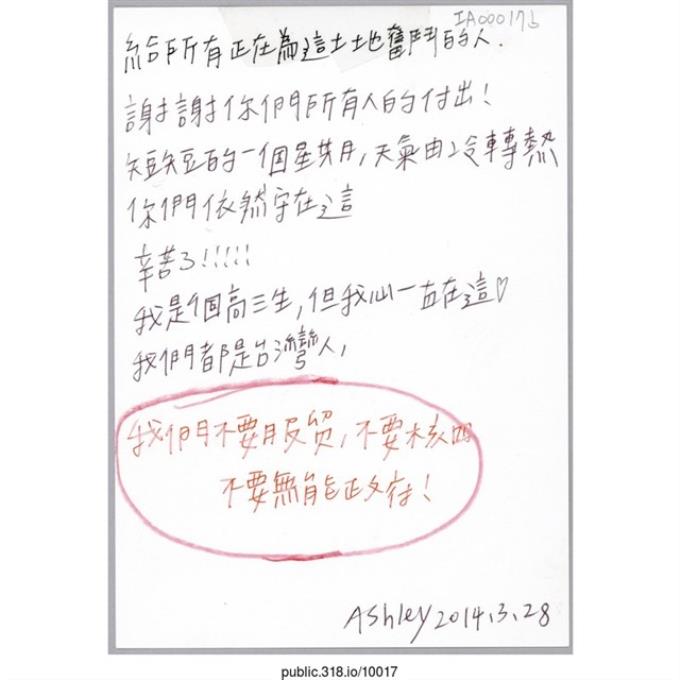 IA00017
給所有正在為這土地奮鬥的人.
謝謝你們所有人的付出!
短短的一個星期,天氣由冷轉熱
你們依然守在這
辛苦了!!!!!
我是個高三生,但我心一直在這♡
我們都是台灣人,
我們不要服貿,不要核四
不要無能政府!
Ashley 2014.3.28
public.318.io/10017